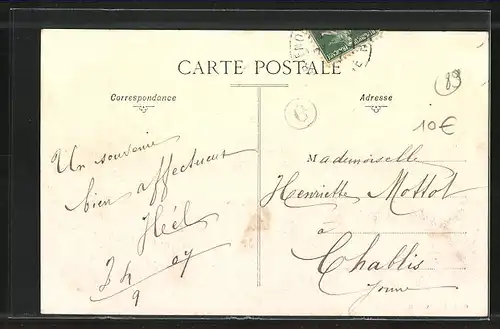 CARTE POSTALE
Correspondance
Adresse
89
10€
C
Un souvenir
bien affectueux
Mademoiselle
Henriette Mottot
à
Chablis
Yonne